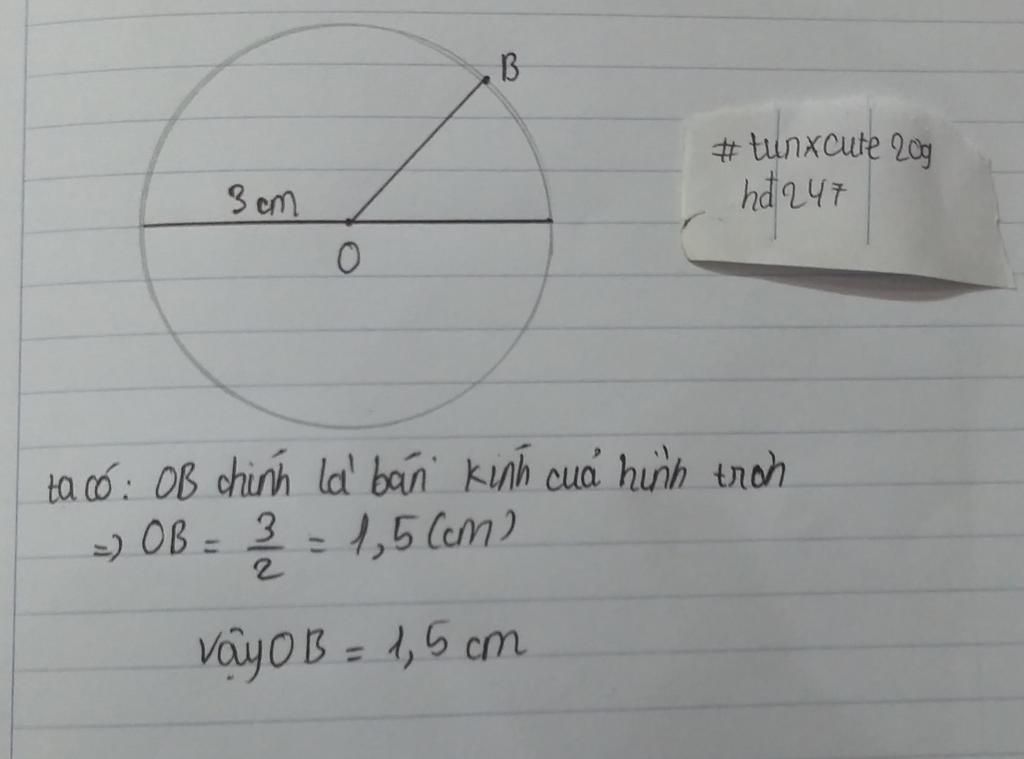 B
3 cm
O
# tunxcute 20g
hđ 247
ta có: OB chính là bán kính cuả hình tròn
=> OB = 3/2 = 1,5 (cm)
vậy OB = 1,5 cm